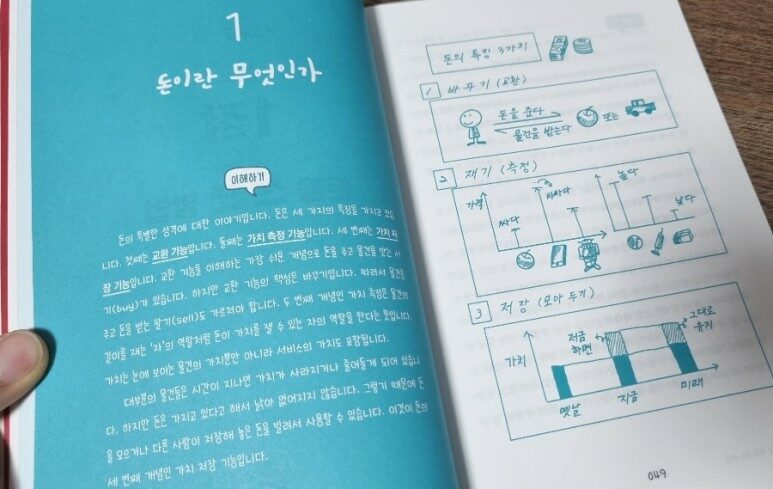 1
돈이란 무엇인가
이해하기
돈의 특별한 성격에 대한 이야기입니다. 돈은 세 가지의 특징을 가지고 있습
니다. 첫째는 교환 기능입니다. 둘째는 가치 측정 기능입니다. 세 번째는 가치 저
장 기능입니다. 교환 기능을 이해하는 가장 쉬운 개념으로 돈을 주고 물건을 받는 사
기(buy)가 있습니다. 하지만 교환 기능의 핵심은 바꾸기입니다. 따라서 물건을
주고 돈을 받는 팔기(sell)도 가르쳐야 합니다. 두 번째 개념인 가치 측정은 물건의
길이를 재는 '자'의 역할처럼 돈이 가치를 잴 수 있는 자의 역할을 한다는 뜻입니다.
가치는 눈에 보이는 물건의 가치뿐만 아니라 서비스의 가치도 포함됩니다.
대부분의 물건들은 시간이 지나면 가치가 사라지거나 줄어들게 되어 있습니
다. 하지만 돈은 가지고 있다고 해서 낡아 없어지지 않습니다. 그렇기 때문에 돈
을 모으거나 다른 사람이 저장해 놓은 돈을 빌려서 사용할 수 있습니다. 이것이 돈의
세 번째 개념인 가치 저장 기능입니다.
돈의 특징 3가지
1 바꾸기 (교환)
돈을 준다
물건을 받는다
또는
2 재기 (측정)
가격
싸다
비싸다
높다
낮다
3 저장 (모아 두기)
가치
저금
하면
그대로
유지
옛날
지금
미래
049